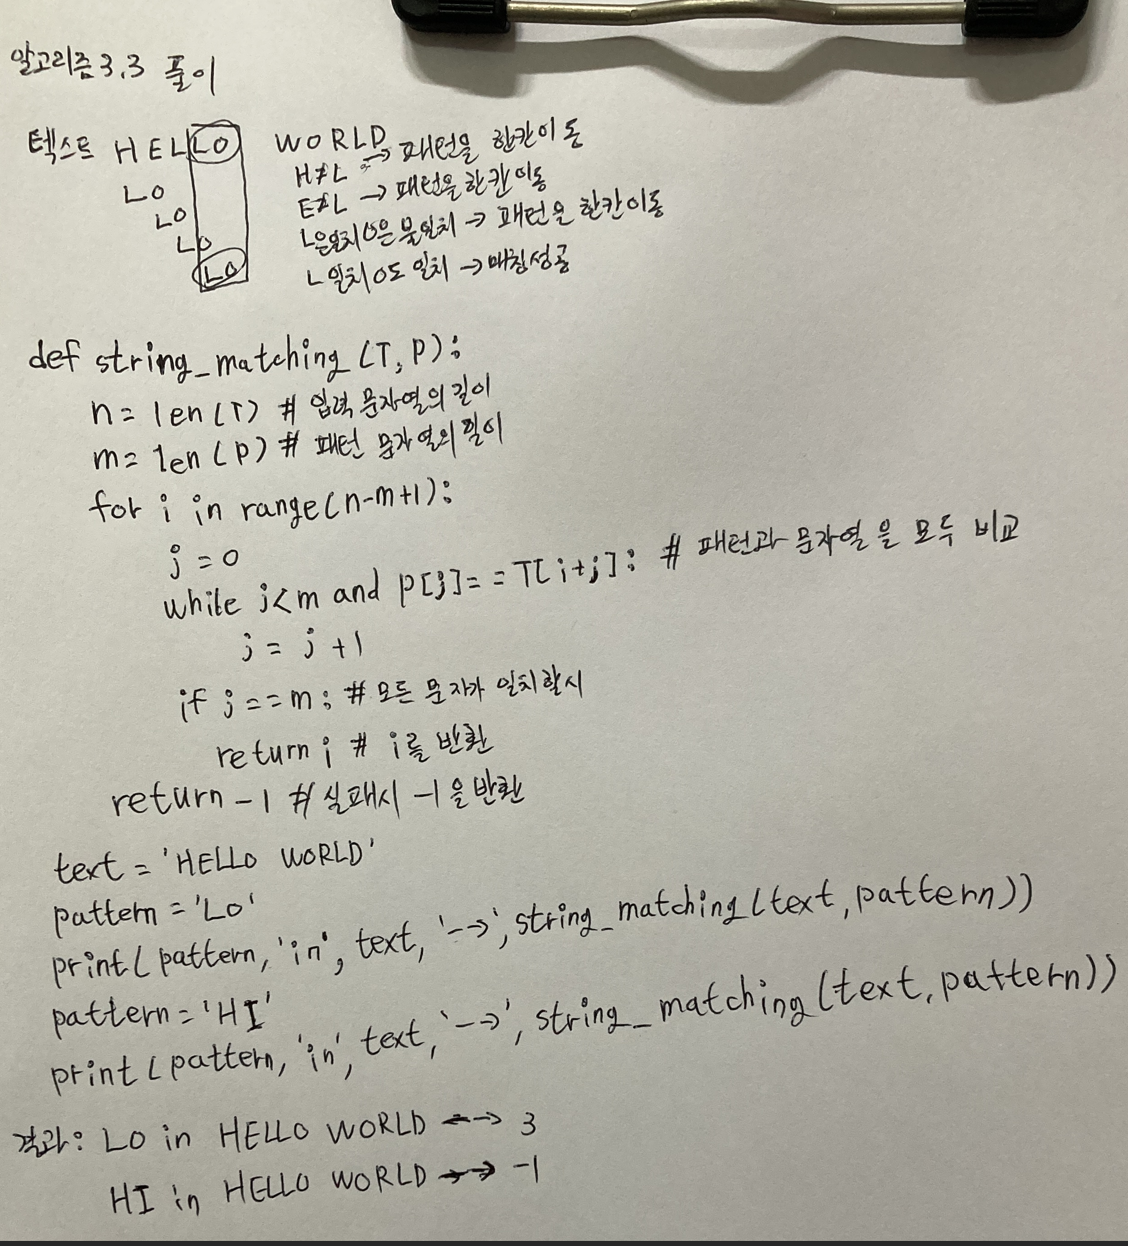 알고리즘 3.3 풀이
텍스트 HELLO WORLD
H≠L → 패턴을 한칸이동
LO
E≠L → 패턴을 한칸이동
LO
L은일치 O은 불일치 → 패턴을 한칸이동
LO
L 일치 O도 일치 → 매칭성공
LO
def string_matching (T, P):
n = len(T) # 입력 문자열의 길이
m = len(P) # 패턴 문자열의 길이
for i in range(n-m+1):
j = 0
while j<m and P[j]==T[i+j]: # 패턴과 문자열을 모두 비교
j = j +1
if j==m: # 모든 문자가 일치할시
return i # i를 반환
return -1 # 실패시 -1을 반환
text = 'HELLO WORLD'
pattern = 'LO'
print(pattern, 'in', text, '-->', string_matching(text, pattern))
pattern = 'HI'
print(pattern, 'in', text, '-->', string_matching(text, pattern))
결과: LO in HELLO WORLD --> 3
HI in HELLO WORLD --> -1